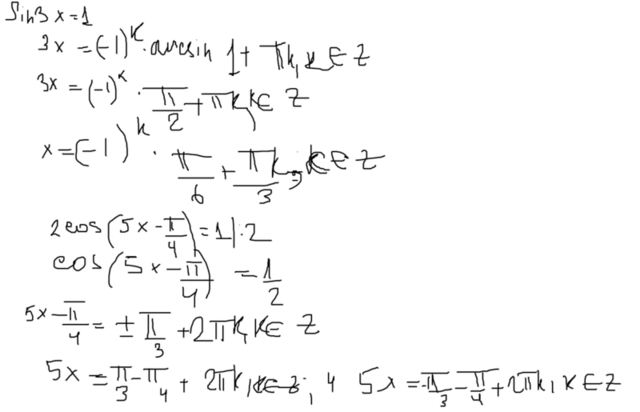 Sin3x=1
3x=(-1)^k · arcsin 1+πk, k∈Z
3x=(-1)^k · π/2+πk, k∈Z
x=(-1)^k · π/6+πk/3; k∈Z
2cos(5x-π/4)=1|:2
cos(5x-π/4)=1/2
5x-π/4=±π/3+2πk, k∈Z
5x=π/3-π/4+2πk, k∈Z; и 5x=-π/3-π/4+2πk, k∈Z